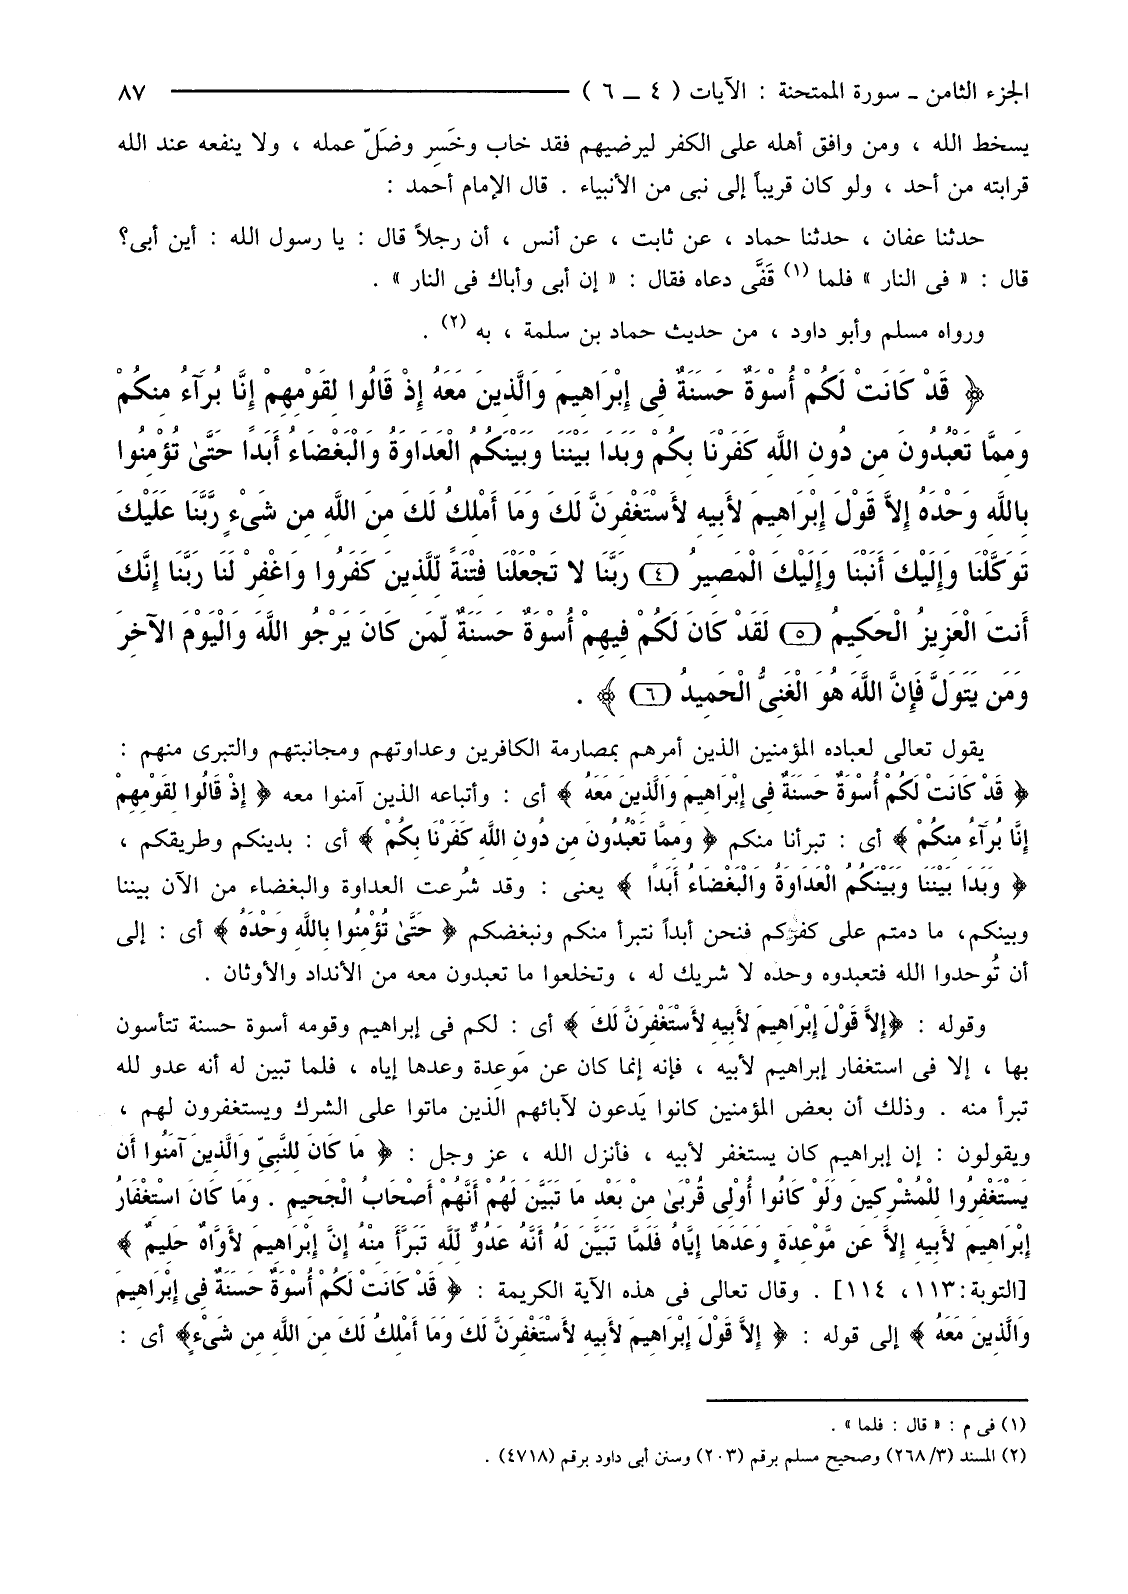 الجزء الثامن ـ سورة الممتحنة : الآيات ( ٤ ـ ٦ ) ٨٧
يسخط الله ، ومن وافق أهله على الكفر ليرضيهم فقد خاب وخَسِر وضَلّ عمله ، ولا ينفعه عند الله
قرابته من أحد ، ولو كان قريباً إلى نبى من الأنبياء . قال الإمام أحمد :
حدثنا عفان ، حدثنا حماد ، عن ثابت ، عن أنس ، أن رجلاً قال : يا رسول الله : أين أبى؟
قال : « فى النار » فلما (١) قَفَّى دعاه فقال : « إن أبى وأباك فى النار » .
ورواه مسلم وأبو داود ، من حديث حماد بن سلمة ، به (٢) .
﴿ قَدْ كَانَتْ لَكُمْ أُسْوَةٌ حَسَنَةٌ فِى إِبْرَاهِيمَ وَالَّذِينَ مَعَهُ إِذْ قَالُوا لِقَوْمِهِمْ إِنَّا بُرَآءُ مِنكُمْ
وَمِمَّا تَعْبُدُونَ مِن دُونِ اللَّهِ كَفَرْنَا بِكُمْ وَبَدَا بَيْنَنَا وَبَيْنَكُمُ الْعَدَاوَةُ وَالْبَغْضَاءُ أَبَدًا حَتَّىٰ تُؤْمِنُوا
بِاللَّهِ وَحْدَهُ إِلاَّ قَوْلَ إِبْرَاهِيمَ لأَبِيهِ لأَسْتَغْفِرَنَّ لَكَ وَمَا أَمْلِكُ لَكَ مِنَ اللَّهِ مِن شَىْءٍ رَّبَّنَا عَلَيْكَ
تَوَكَّلْنَا وَإِلَيْكَ أَنَبْنَا وَإِلَيْكَ الْمَصِيرُ (٤) رَبَّنَا لا تَجْعَلْنَا فِتْنَةً لِّلَّذِينَ كَفَرُوا وَاغْفِرْ لَنَا رَبَّنَا إِنَّكَ
أَنتَ الْعَزِيزُ الْحَكِيمُ (٥) لَقَدْ كَانَ لَكُمْ فِيهِمْ أُسْوَةٌ حَسَنَةٌ لِّمَن كَانَ يَرْجُو اللَّهَ وَالْيَوْمَ الآخِرَ
وَمَن يَتَوَلَّ فَإِنَّ اللَّهَ هُوَ الْغَنِىُّ الْحَمِيدُ (٦) ﴾ .
يقول تعالى لعباده المؤمنين الذين أمرهم بمصارمة الكافرين وعداوتهم ومجانبتهم والتبرى منهم :
﴿ قَدْ كَانَتْ لَكُمْ أُسْوَةٌ حَسَنَةٌ فِى إِبْرَاهِيمَ وَالَّذِينَ مَعَهُ ﴾ أى : وأتباعه الذين آمنوا معه ﴿ إِذْ قَالُوا لِقَوْمِهِمْ
إِنَّا بُرَآءُ مِنكُمْ ﴾ أى : تبرأنا منكم ﴿ وَمِمَّا تَعْبُدُونَ مِن دُونِ اللَّهِ كَفَرْنَا بِكُمْ ﴾ أى : بدينكم وطريقكم ،
﴿ وَبَدَا بَيْنَنَا وَبَيْنَكُمُ الْعَدَاوَةُ وَالْبَغْضَاءُ أَبَدًا ﴾ يعنى : وقد شُرعت العداوة والبغضاء من الآن بيننا
وبينكم، ما دمتم على كفركم فنحن أبداً نتبرأ منكم ونبغضكم ﴿ حَتَّىٰ تُؤْمِنُوا بِاللَّهِ وَحْدَهُ ﴾ أى : إلى
أن تُوحدوا الله فتعبدوه وحده لا شريك له ، وتخلعوا ما تعبدون معه من الأنداد والأوثان .
وقوله : ﴿إِلاَّ قَوْلَ إِبْرَاهِيمَ لأَبِيهِ لأَسْتَغْفِرَنَّ لَكَ ﴾ أى : لكم فى إبراهيم وقومه أسوة حسنة تتأسون
بها ، إلا فى استغفار إبراهيم لأبيه ، فإنه إنما كان عن مَوعدة وعدها إياه ، فلما تبين له أنه عدو لله
تبرأ منه . وذلك أن بعض المؤمنين كانوا يَدعون لآبائهم الذين ماتوا على الشرك ويستغفرون لهم ،
ويقولون : إن إبراهيم كان يستغفر لأبيه ، فأنزل الله ، عز وجل : ﴿ مَا كَانَ لِلنَّبِىِّ وَالَّذِينَ آمَنُوا أَن
يَسْتَغْفِرُوا لِلْمُشْرِكِينَ وَلَوْ كَانُوا أُوْلِى قُرْبَىٰ مِنْ بَعْدِ مَا تَبَيَّنَ لَهُمْ أَنَّهُمْ أَصْحَابُ الْجَحِيمِ . وَمَا كَانَ اسْتِغْفَارُ
إِبْرَاهِيمَ لأَبِيهِ إِلاَّ عَن مَّوْعِدَةٍ وَعَدَهَا إِيَّاهُ فَلَمَّا تَبَيَّنَ لَهُ أَنَّهُ عَدُوٌّ لِّلَّهِ تَبَرَّأَ مِنْهُ إِنَّ إِبْرَاهِيمَ لأَوَّاهٌ حَلِيمٌ ﴾
[التوبة: ١١٣، ١١٤] . وقال تعالى فى هذه الآية الكريمة : ﴿ قَدْ كَانَتْ لَكُمْ أُسْوَةٌ حَسَنَةٌ فِى إِبْرَاهِيمَ
وَالَّذِينَ مَعَهُ ﴾ إلى قوله : ﴿ إِلاَّ قَوْلَ إِبْرَاهِيمَ لأَبِيهِ لأَسْتَغْفِرَنَّ لَكَ وَمَا أَمْلِكُ لَكَ مِنَ اللَّهِ مِن شَىْءٍ﴾ أى :
(١) فى م : « قال : فلما » .
(٢) المسند (٢٦٨/٣) وصحيح مسلم برقم (٢٠٣) وسنن أبى داود برقم (٤٧١٨) .